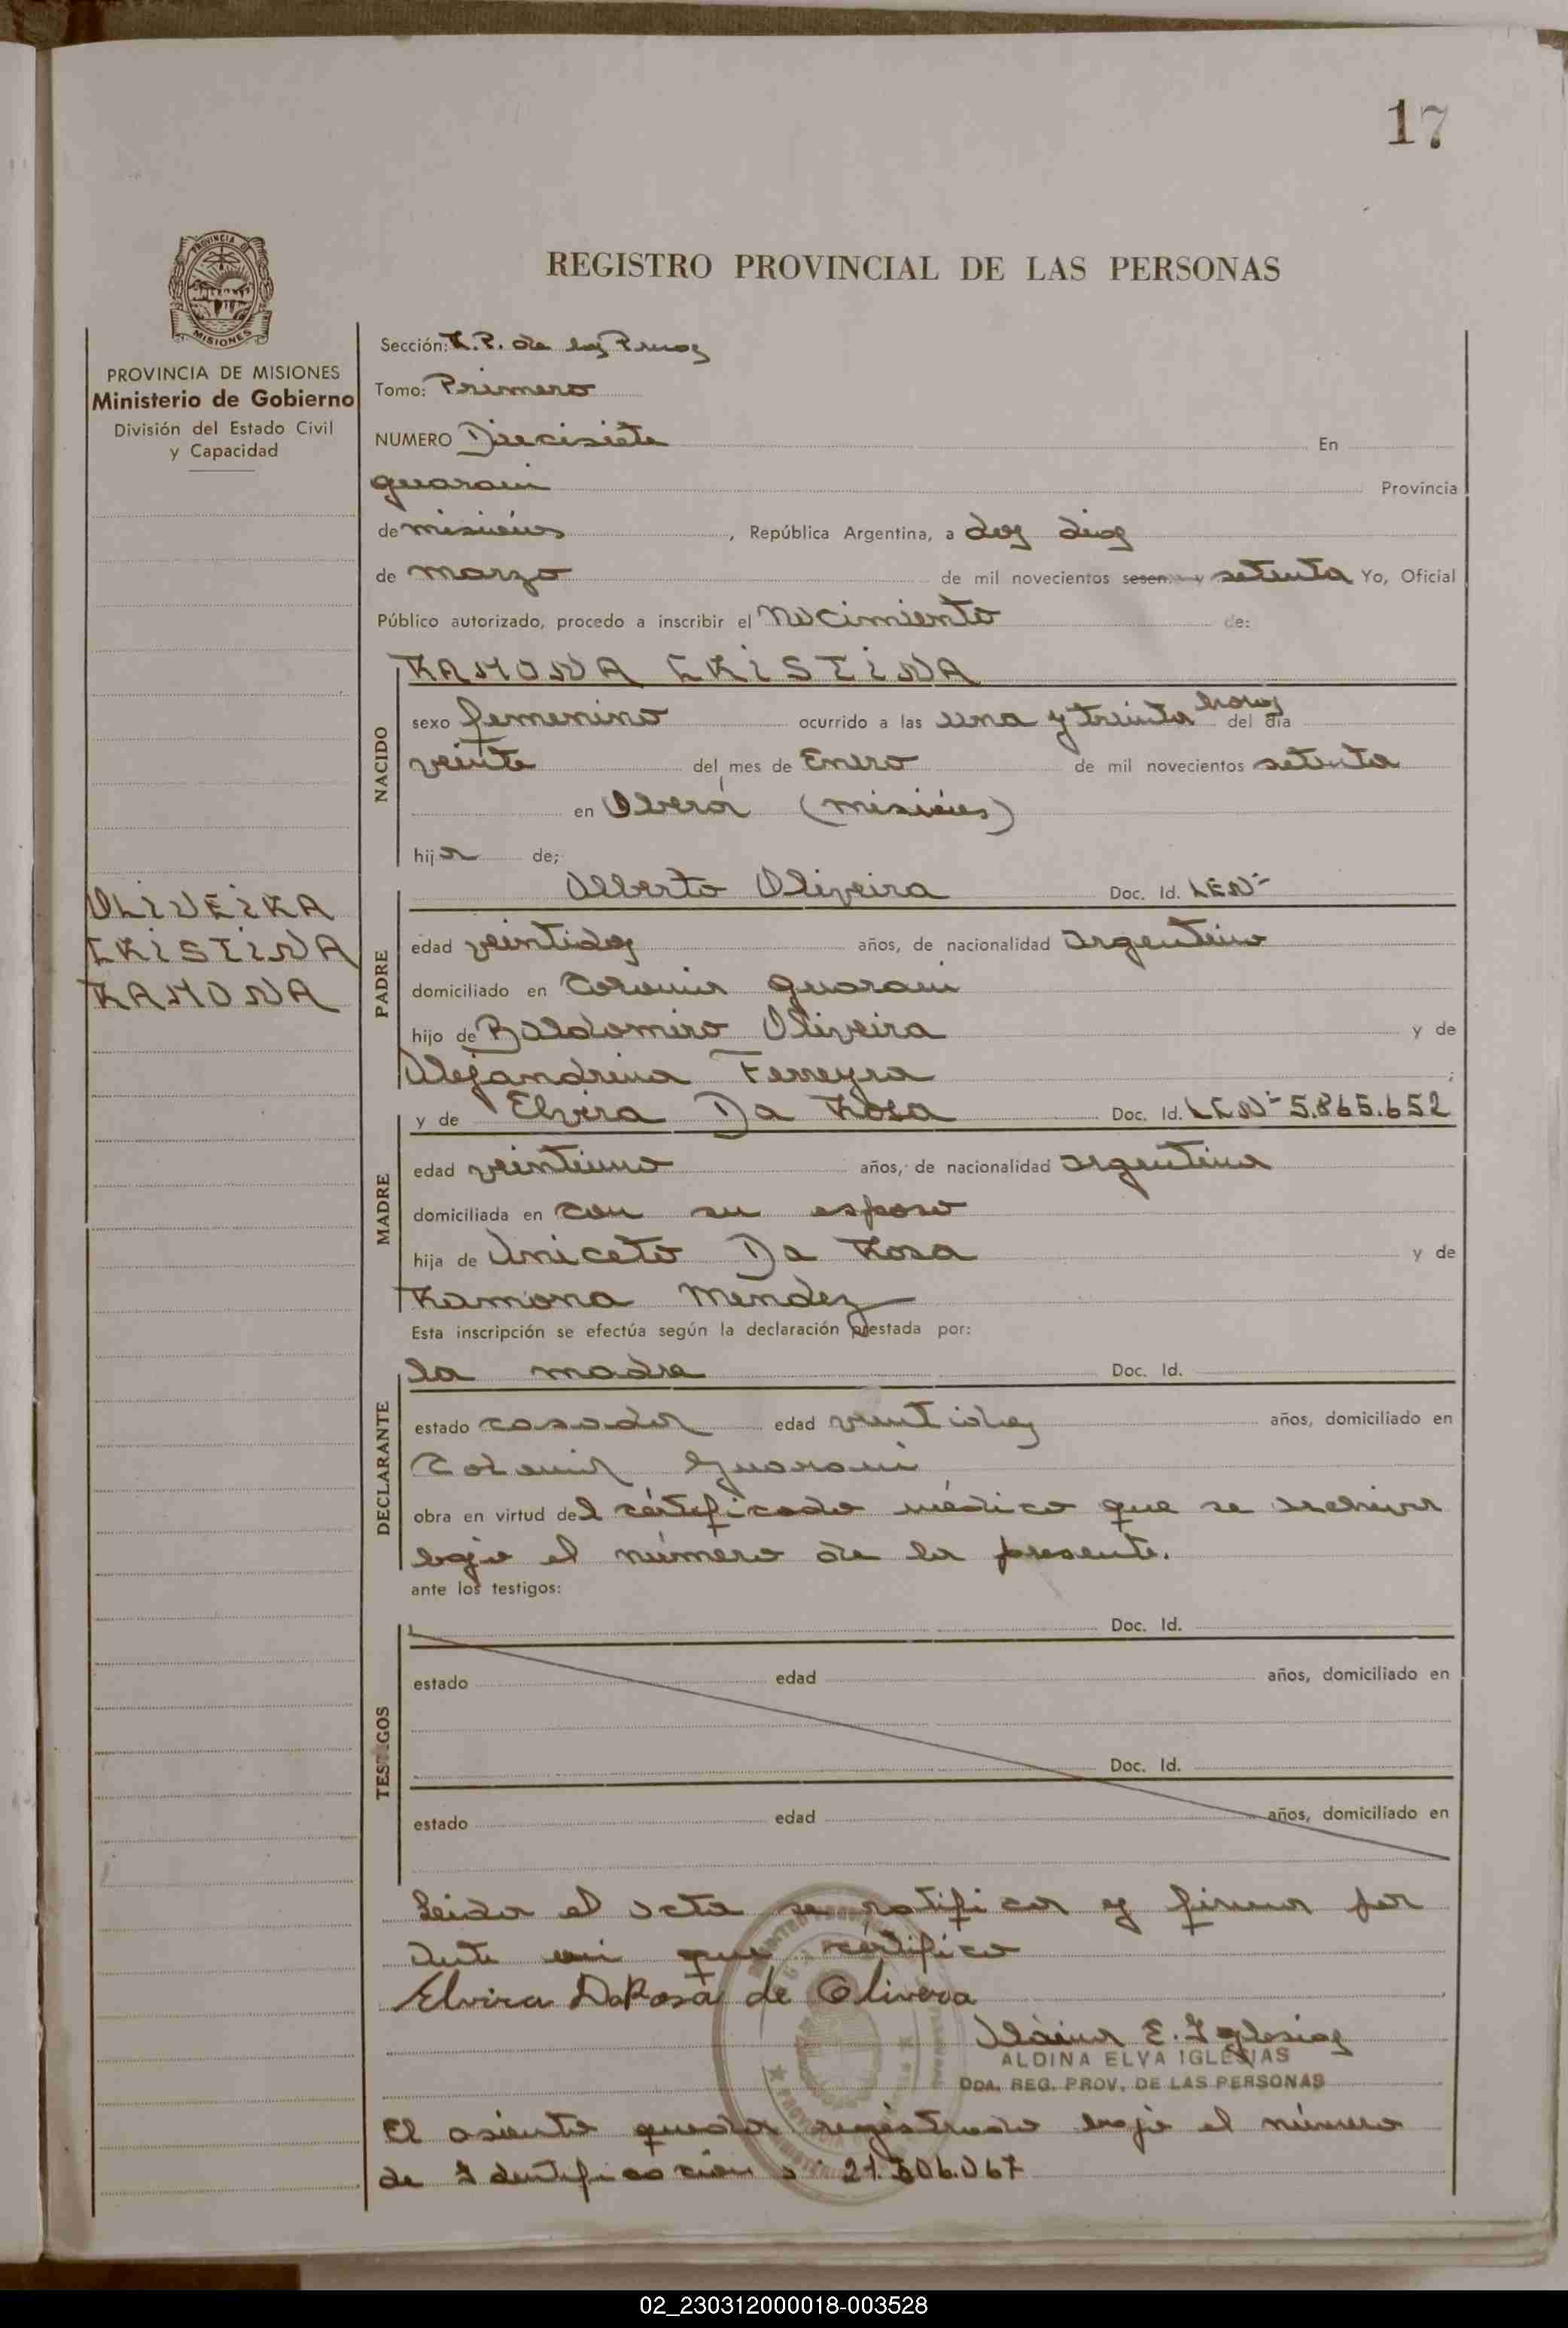 17
REGISTRO PROVINCIAL DE LAS PERSONAS
PROVINCIA DE MISIONES
Ministerio de Gobierno
División del Estado Civil
y Capacidad
Sección: R.P. de las Pnas
Tomo: Primero
NUMERO Diecisiete En
Guarani Provincia
de misiones, República Argentina, a dos dias
de marzo de mil novecientos sesen y setenta Yo, Oficial
Público autorizado, procedo a inscribir el nacimiento de:
RAMONA CRISTINA
NACIDO
sexo femenino ocurrido a las una y treinta horas del día
veinte del mes de Enero de mil novecientos setenta
en Oberá (misiones)
hija de;
OLIVEIRA
CRISTINA
RAMONA
PADRE
Alberto Oliveira Doc. Id. LEN°
edad veintidos años, de nacionalidad argentino
domiciliado en Colonia Guarani
hijo de Baldomiro Oliveira y de
Alejandrina Ferreyra ;
MADRE
y de Elvira Da Rosa Doc. Id. LCN° 5.865.652
edad veintiuno años, de nacionalidad argentina
domiciliada en con su esposo
hija de Aniceto Da Rosa y de
Ramona Mendez
Esta inscripción se efectúa según la declaración prestada por:
DECLARANTE
la madre Doc. Id.
estado casada edad veintidos años, domiciliado en
Colonia Guarani
obra en virtud del cértificado médico que se archiva
bajo el número de la presente.
ante los testigos:
TESTIGOS
Doc. Id.
estado edad años, domiciliado en
Doc. Id.
estado edad años, domiciliado en
Leida el acta se ratifica y firma por
Ante mi que certifico
Elvira DaRosa de Olivera
Aldina E. Iglesias
ALDINA ELVA IGLESIAS
DDA. REG. PROV. DE LAS PERSONAS
El asiento queda registrado bajo el número
de Identificación : 21.306.067
02_230312000018-003528